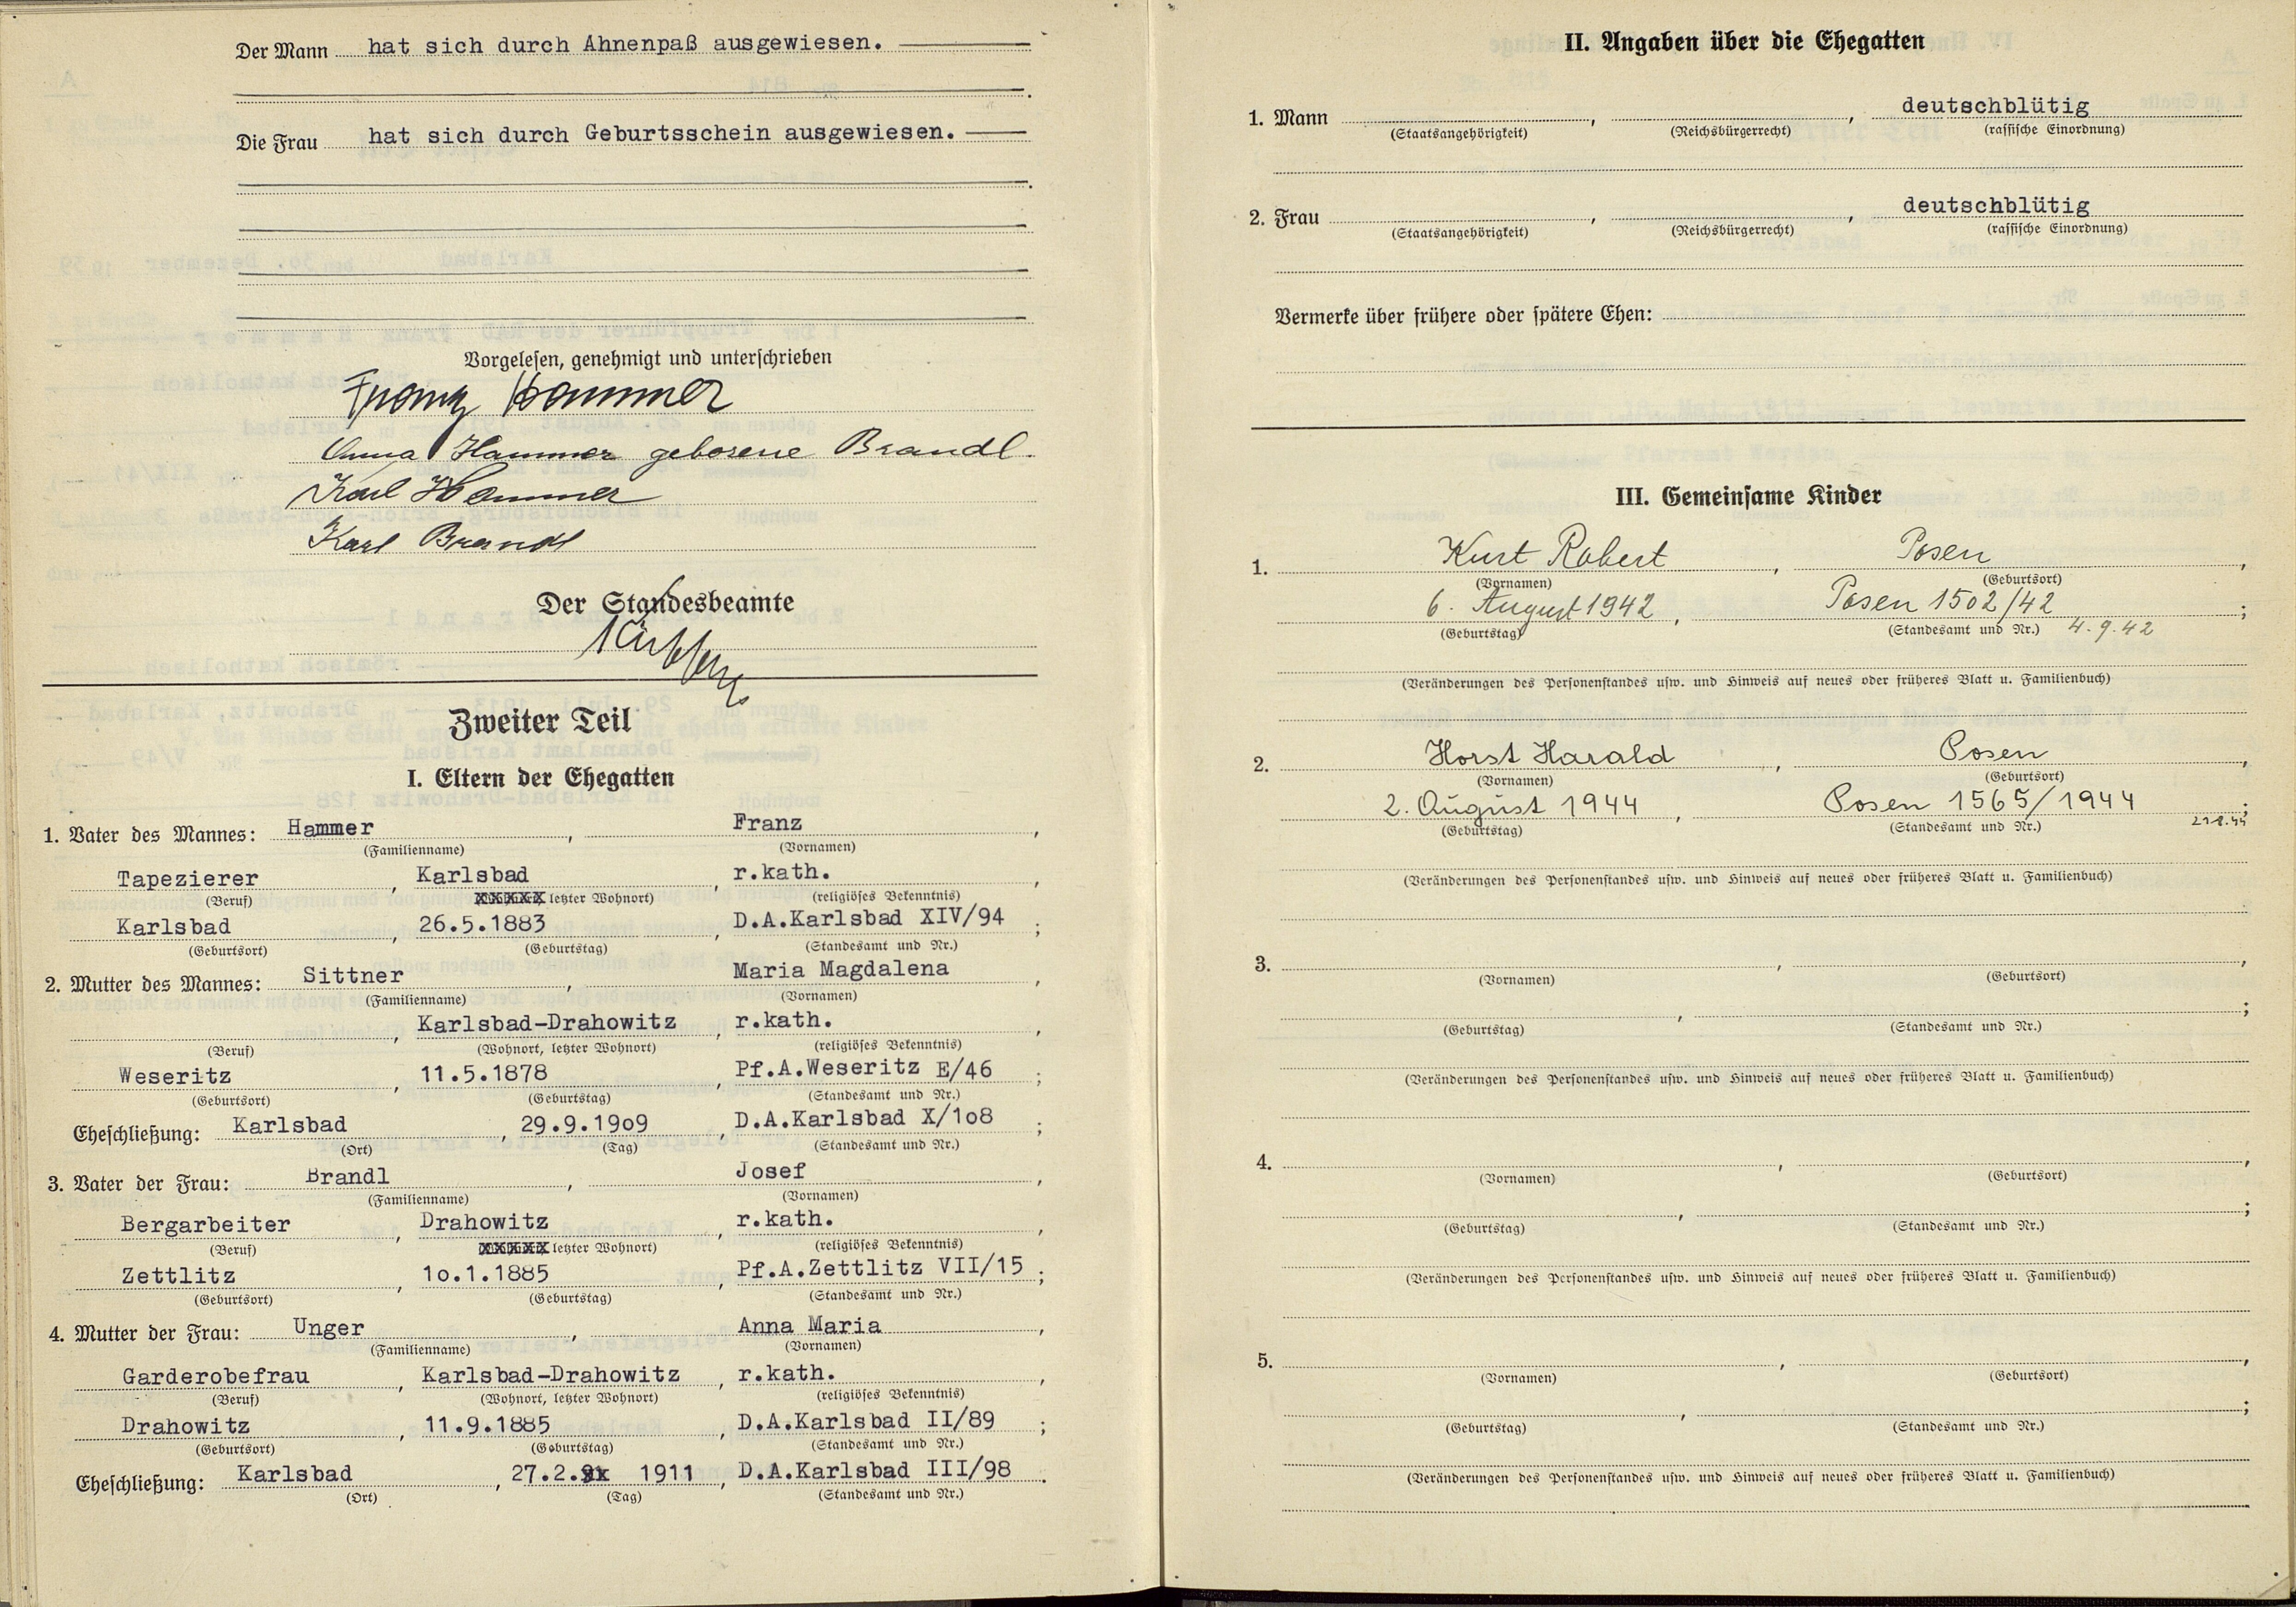 Der Mann hat sich durch Ahnenpaß ausgewiesen.
Die Frau hat sich durch Geburtsschein ausgewiesen.
Vorgelesen, genehmigt und unterschrieben
Franz Hammer
Anna Hammer geborene Brandl.
Karl Hammer
Karl Brandl
Der Standesbeamte
Zweiter Teil
I. Eltern der Ehegatten
1. Vater des Mannes: Hammer, Franz,
(Familienname) (Vornamen)
Tapezierer, Karlsbad, r.kath.,
(Beruf) xxxxx letzter Wohnort) (religiöses Bekenntnis)
Karlsbad, 26.5.1883, D.A.Karlsbad XIV/94;
(Geburtsort) (Geburtstag) (Standesamt und Nr.)
2. Mutter des Mannes: Sittner, Maria Magdalena,
(Familienname) (Vornamen)
, Karlsbad-Drahowitz, r.kath.,
(Beruf) (Wohnort, letzter Wohnort) (religiöses Bekenntnis)
Weseritz, 11.5.1878, Pf.A.Weseritz E/46;
(Geburtsort) (Geburtstag) (Standesamt und Nr.)
Eheschließung: Karlsbad, 29.9.19o9, D.A.Karlsbad X/1o8;
(Ort) (Tag) (Standesamt und Nr.)
3. Vater der Frau: Brandl, Josef,
(Familienname) (Vornamen)
Bergarbeiter, Drahowitz, r.kath.,
(Beruf) xxxxx letzter Wohnort) (religiöses Bekenntnis)
Zettlitz, 1o.1.1885, Pf.A.Zettlitz VII/15;
(Geburtsort) (Geburtstag) (Standesamt und Nr.)
4. Mutter der Frau: Unger, Anna Maria,
(Familienname) (Vornamen)
Garderobefrau, Karlsbad-Drahowitz, r.kath.,
(Beruf) (Wohnort, letzter Wohnort) (religiöses Bekenntnis)
Drahowitz, 11.9.1885, D.A.Karlsbad II/89;
(Geburtsort) (Geburtstag) (Standesamt und Nr.)
Eheschließung: Karlsbad, 27.2. 1911, D.A.Karlsbad III/98.
(Ort) (Tag) (Standesamt und Nr.)
II. Angaben über die Ehegatten
1. Mann , , deutschblütig
(Staatsangehörigkeit) (Reichsbürgerrecht) (rassische Einordnung)
2. Frau , , deutschblütig
(Staatsangehörigkeit) (Reichsbürgerrecht) (rassische Einordnung)
Vermerke über frühere oder spätere Ehen:
III. Gemeinsame Kinder
1. Kurt Robert, Posen,
(Vornamen) (Geburtsort)
6. August 1942, Posen 1502/42;
(Geburtstag) (Standesamt und Nr.) 4.9.42
(Veränderungen des Personenstandes usw. und Hinweis auf neues oder früheres Blatt u. Familienbuch)
2. Horst Harald, Posen,
(Vornamen) (Geburtsort)
2. August 1944, Posen 1565/1944;
(Geburtstag) (Standesamt und Nr.)
(Veränderungen des Personenstandes usw. und Hinweis auf neues oder früheres Blatt u. Familienbuch)
3. , ,
(Vornamen) (Geburtsort)
, ;
(Geburtstag) (Standesamt und Nr.)
(Veränderungen des Personenstandes usw. und Hinweis auf neues oder früheres Blatt u. Familienbuch)
4. , ,
(Vornamen) (Geburtsort)
, ;
(Geburtstag) (Standesamt und Nr.)
(Veränderungen des Personenstandes usw. und Hinweis auf neues oder früheres Blatt u. Familienbuch)
5. , ,
(Vornamen) (Geburtsort)
, ;
(Geburtstag) (Standesamt und Nr.)
(Veränderungen des Personenstandes usw. und Hinweis auf neues oder früheres Blatt u. Familienbuch)